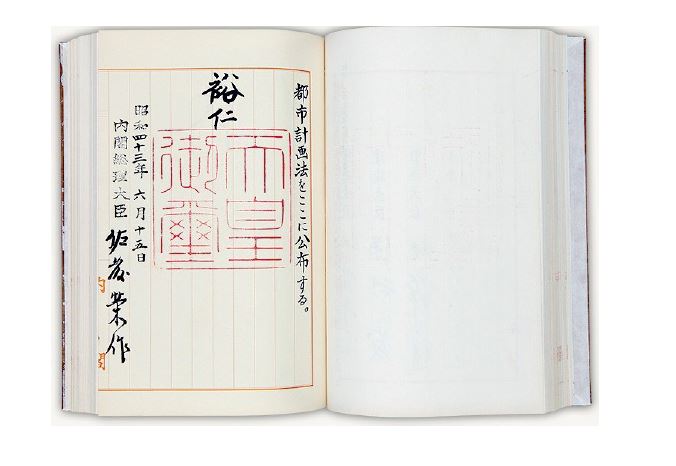 都市計画法をここに公布する。
裕仁
天皇
御璽
昭和四十三年六月十五日
内閣総理大臣 佐藤榮作
内閣